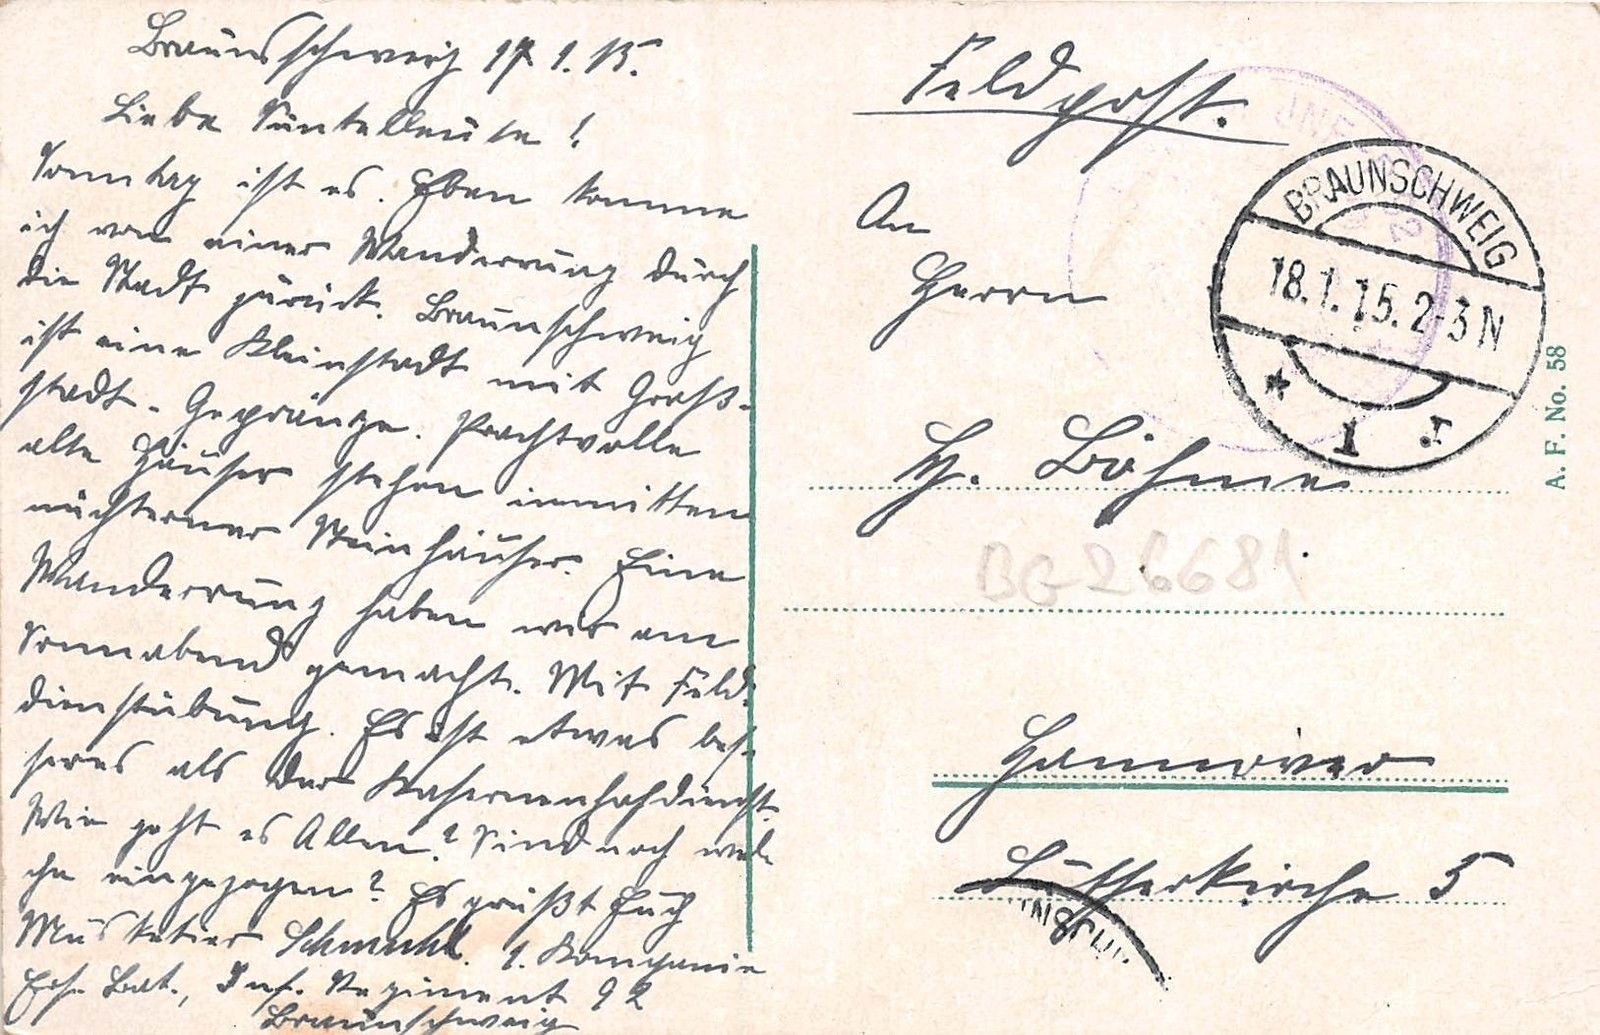 Braunschweig 17.1.15.
Liebe Süntelleute!
Sonntag ist es. Eben komme
ich von einer Wanderung durch
die Stadt zurück. Braunschweig
ist eine Kleinstadt mit Groß-
stadt-Gepränge. Prachtvolle
alte Häuser stehen inmitten
nüchterner Steinhäuser. Eine
Wanderung haben wir am
Sonnabend gemacht. Mit Feld-
dienstübung. Es ist etwas bes-
seres als der Kasernenhofdienst.
Wie geht es Allen? Sind noch wel-
che eingezogen? Es grüßt Euch
Musketier Schmuhl. 1. Kompanie
Ers. Bat., Inf. Regiment 92
Braunschweig
Feldpost.
An
Herrn
H. Böhme
Hannover
Lutherkirche 5
BRAUNSCHWEIG
18.1.15.2-3N
* 1 r
BG26681
A. F. No. 58